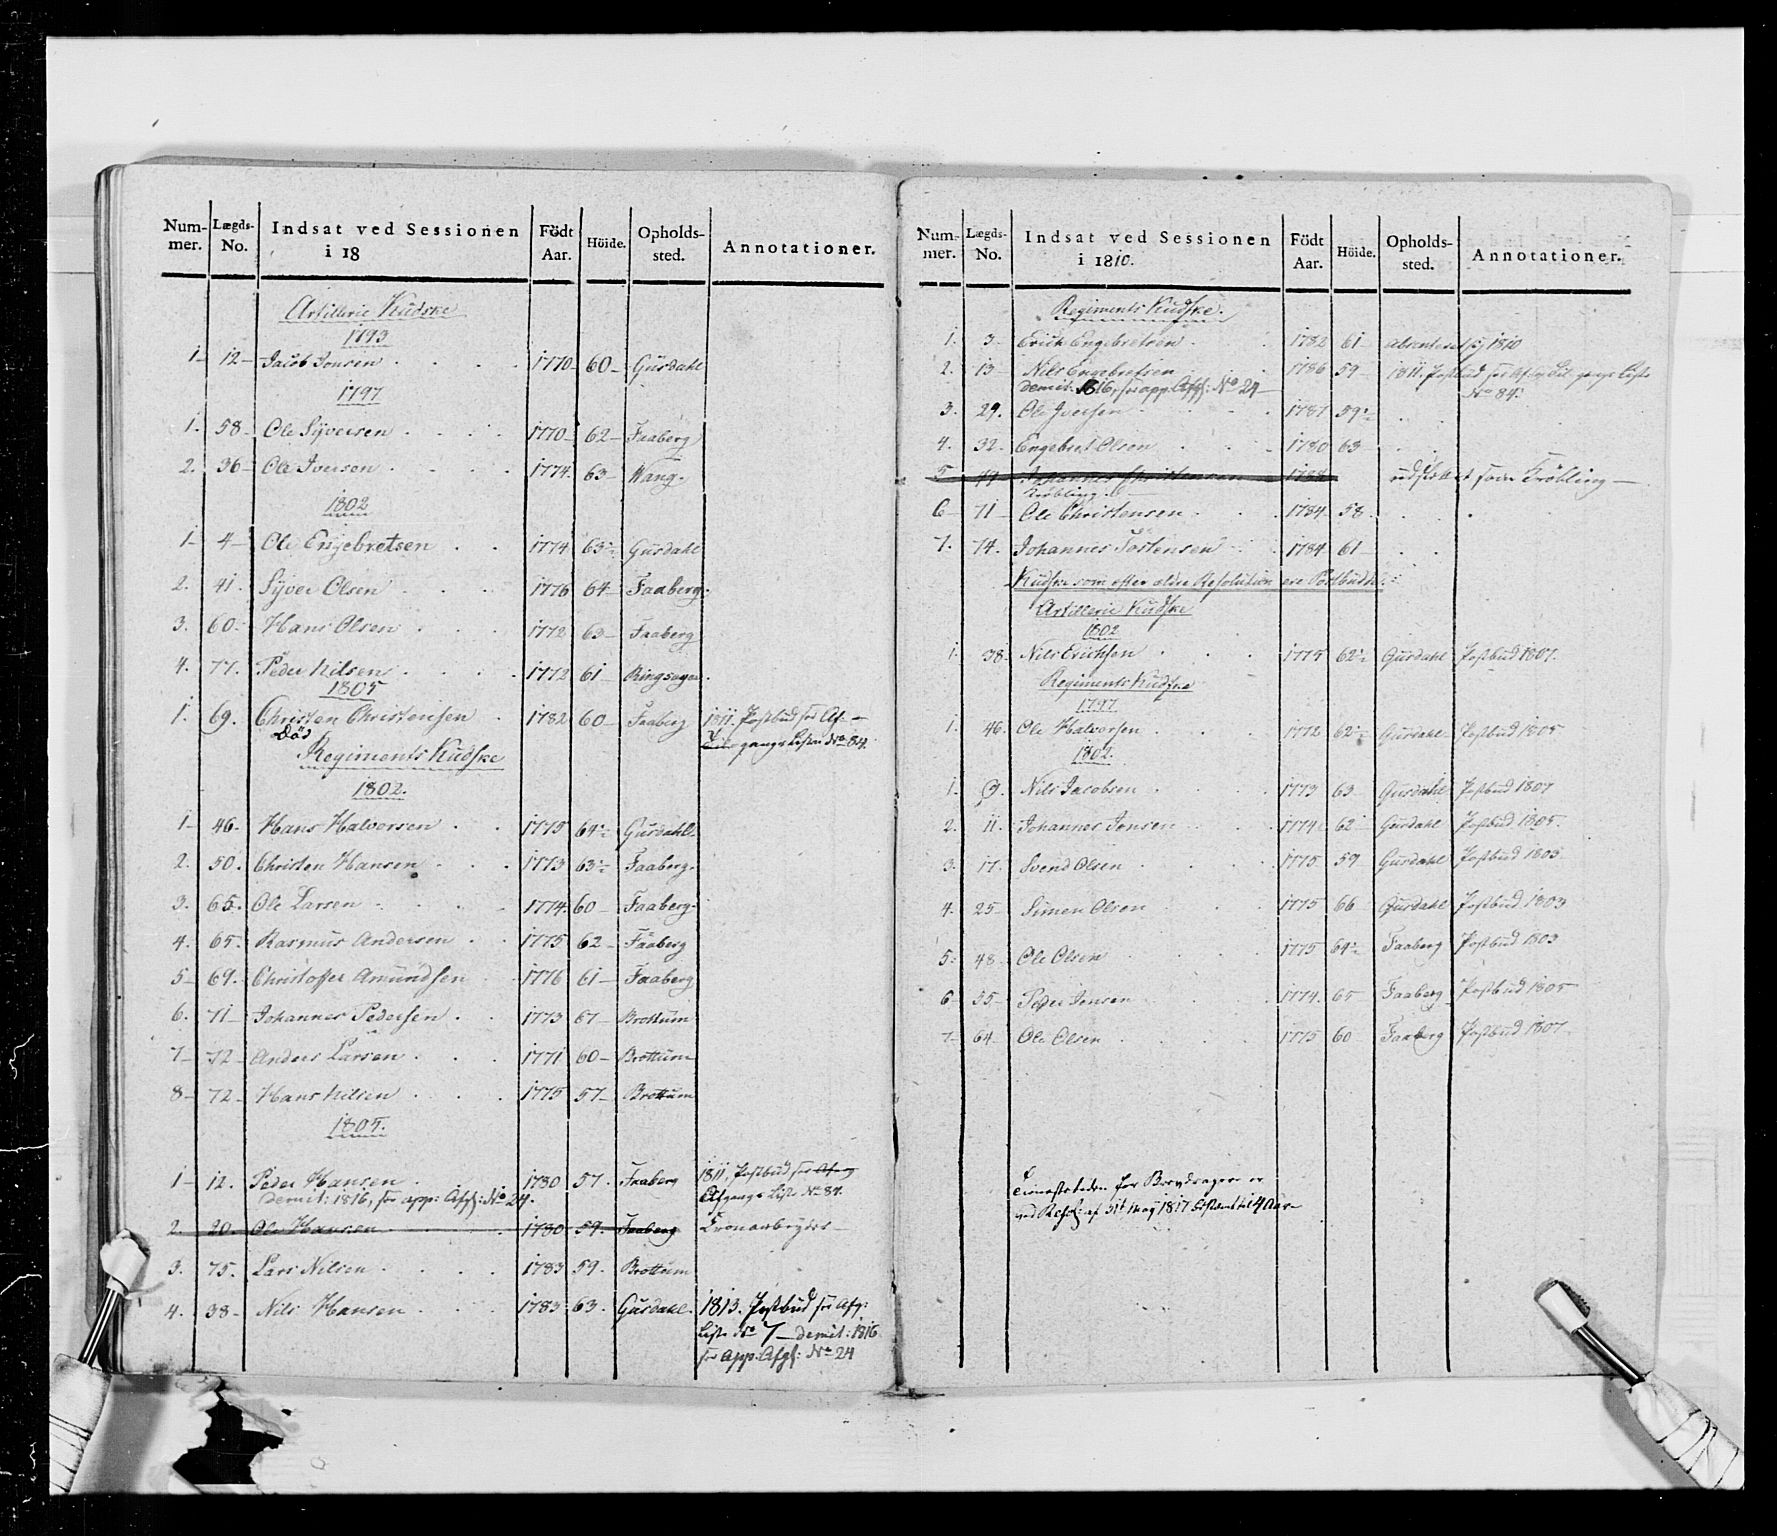 Num-mer. Lægds-No. Indsat ved Sessionen i 18 Födt Aar. Höide. Opholds-sted. Annotationer.
Artillerie Kudske
1793
1- 12- Jacob Jonsen 1770 60- Gusdahl
1797
1. 58- Ole Syversen 1770- 62- Faaberg
2. 36- Ole Iversen 1774. 63- Wang.
1802
1- 4- Ole Engebretsen 1774 63½ Gusdahl
2. 41. Syver Olsen 1776 64- Faaberg.
3. 60. Hans Olsen 1772 63- Faaberg
4. 77. Peder Nilsen 1772 61- Ringsager.
1805
1. 69. Christen Christensen 1782 60- Faaberg 1811. Postbud for Af-
Död gangs Listen No 84.
Regiments Kudske
1802.
1- 46. Hans Halvorsen 1775 64½ Gusdahl
2. 50. Christen Hansen 1773 63½ Faaberg.
3. 65. Ole Larsen 1774. 60- Faaberg.
4. 65. Rasmus Andersen 1775 62- Faaberg
5- 69. Christoffer Amundsen 1776 61- Faaberg
6. 71- Johannes Pedersen 1773 67- Brottum
7- 72- Anders Larsen 1771 60- Brottum
8- 72- Hans Nilsen 1775 57- Brottum
1805.
1- 12. Peder Hansen 1780 57. Faaberg 1811. Postbud for Afang
demit: 1816, for app: Afgs: No 24. Afgangs Liste No 84.
2. 20. Ole Hansen 1780 59. Faaberg Cronarbeyder-
3. 75. Lars Nilsen 1783 59. Brottum
4. 38- Nils Hansen 1783 63. Gusdahl. 1813. Postbud for Afg:
Liste No 7- demit: 1816
for App: Afgs: No 24
Num-mer. Lægds-No. Indsat ved Sessionen i 1810. Födt Aar. Höide. Opholds-sted. Annotationer.
Regiments Kudske.
1. 3- Erich Engebretsen 1782 61- 1810
2. 13- Nils Engebretsen 1786 59- 1811. Postbud for gangs Liste
demit. 1816, for app: Afgs: No 24- No 84.
3. 29. Ole Iversen 1787 59½
4. 32. Engebret Olsen 1780 63-
5- 49 Johannes Christensen 1784 udslettet som Kröbling-
Kröbling.
6- 71- Ole Christensen 1784 58.
7. 74. Johannes Tostensen 1784 61-
Kudske som efter ældre Resolution ere Postbudde.
Artillerie Kudske
1802
1. 38. Nils Erichsen 1775 62½ Gusdahl Postbud 1807.
Regiments Kudske
1797.
1. 46. Ole Halvorsen 1772 62½ Gusdahl Postbud 1805-
1802.
1- 9. Nils Jacobsen 1773 63- Gusdahl Postbud 1807
2. 11. Johannes Jonsen 1774. 62 Gusdahl Postbud 1805.
3. 17. Svend Olsen 1775 59 Gusdahl Postbud 1803.
4. 25- Simen Olsen 1775 66 Gusdahl Postbud 1803
5. 48- Ole Olsen 1775 64½ Faaberg Postbud 1803
6- 55- Peder Jonsen 1774. 65 Faaberg Postbud 1805-
7- 64- Ole Olsen 1775 60- Faaberg Postbud 1807.
Tienestetiden for Brevdragere er
ved Resol: af 31t May 1817 bestemt til 4 Aar-